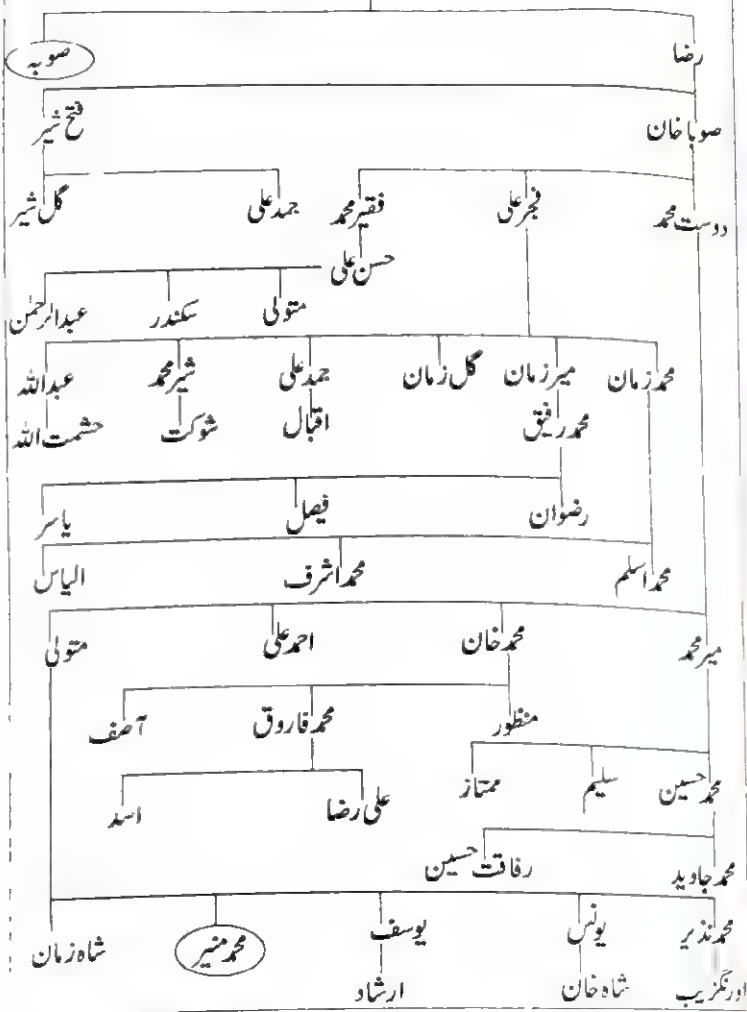 رضا صوبہ
صوبا خان فتح شیر
دوست محمد فجر علی فقیر محمد جمد علی گل شیر
حسن علی
متولی سکندر عبدالرحمٰن
محمد زمان میر زمان گل زمان جمد علی شیر محمد عبداللہ
محمد رفیق اقبال شوکت حشمت اللہ
رضوان فیصل یاسر
محمد اسلم محمد اشرف الیاس
میر محمد محمد خان احمد علی متولی
منظور محمد فاروق آصف
محمد حسین سلیم ممتاز علی رضا اسد
محمد جاوید رفاقت حسین
محمد نذیر یونس یوسف محمد منیر شاہ زمان
اورنگزیب شاہ خان ارشاد